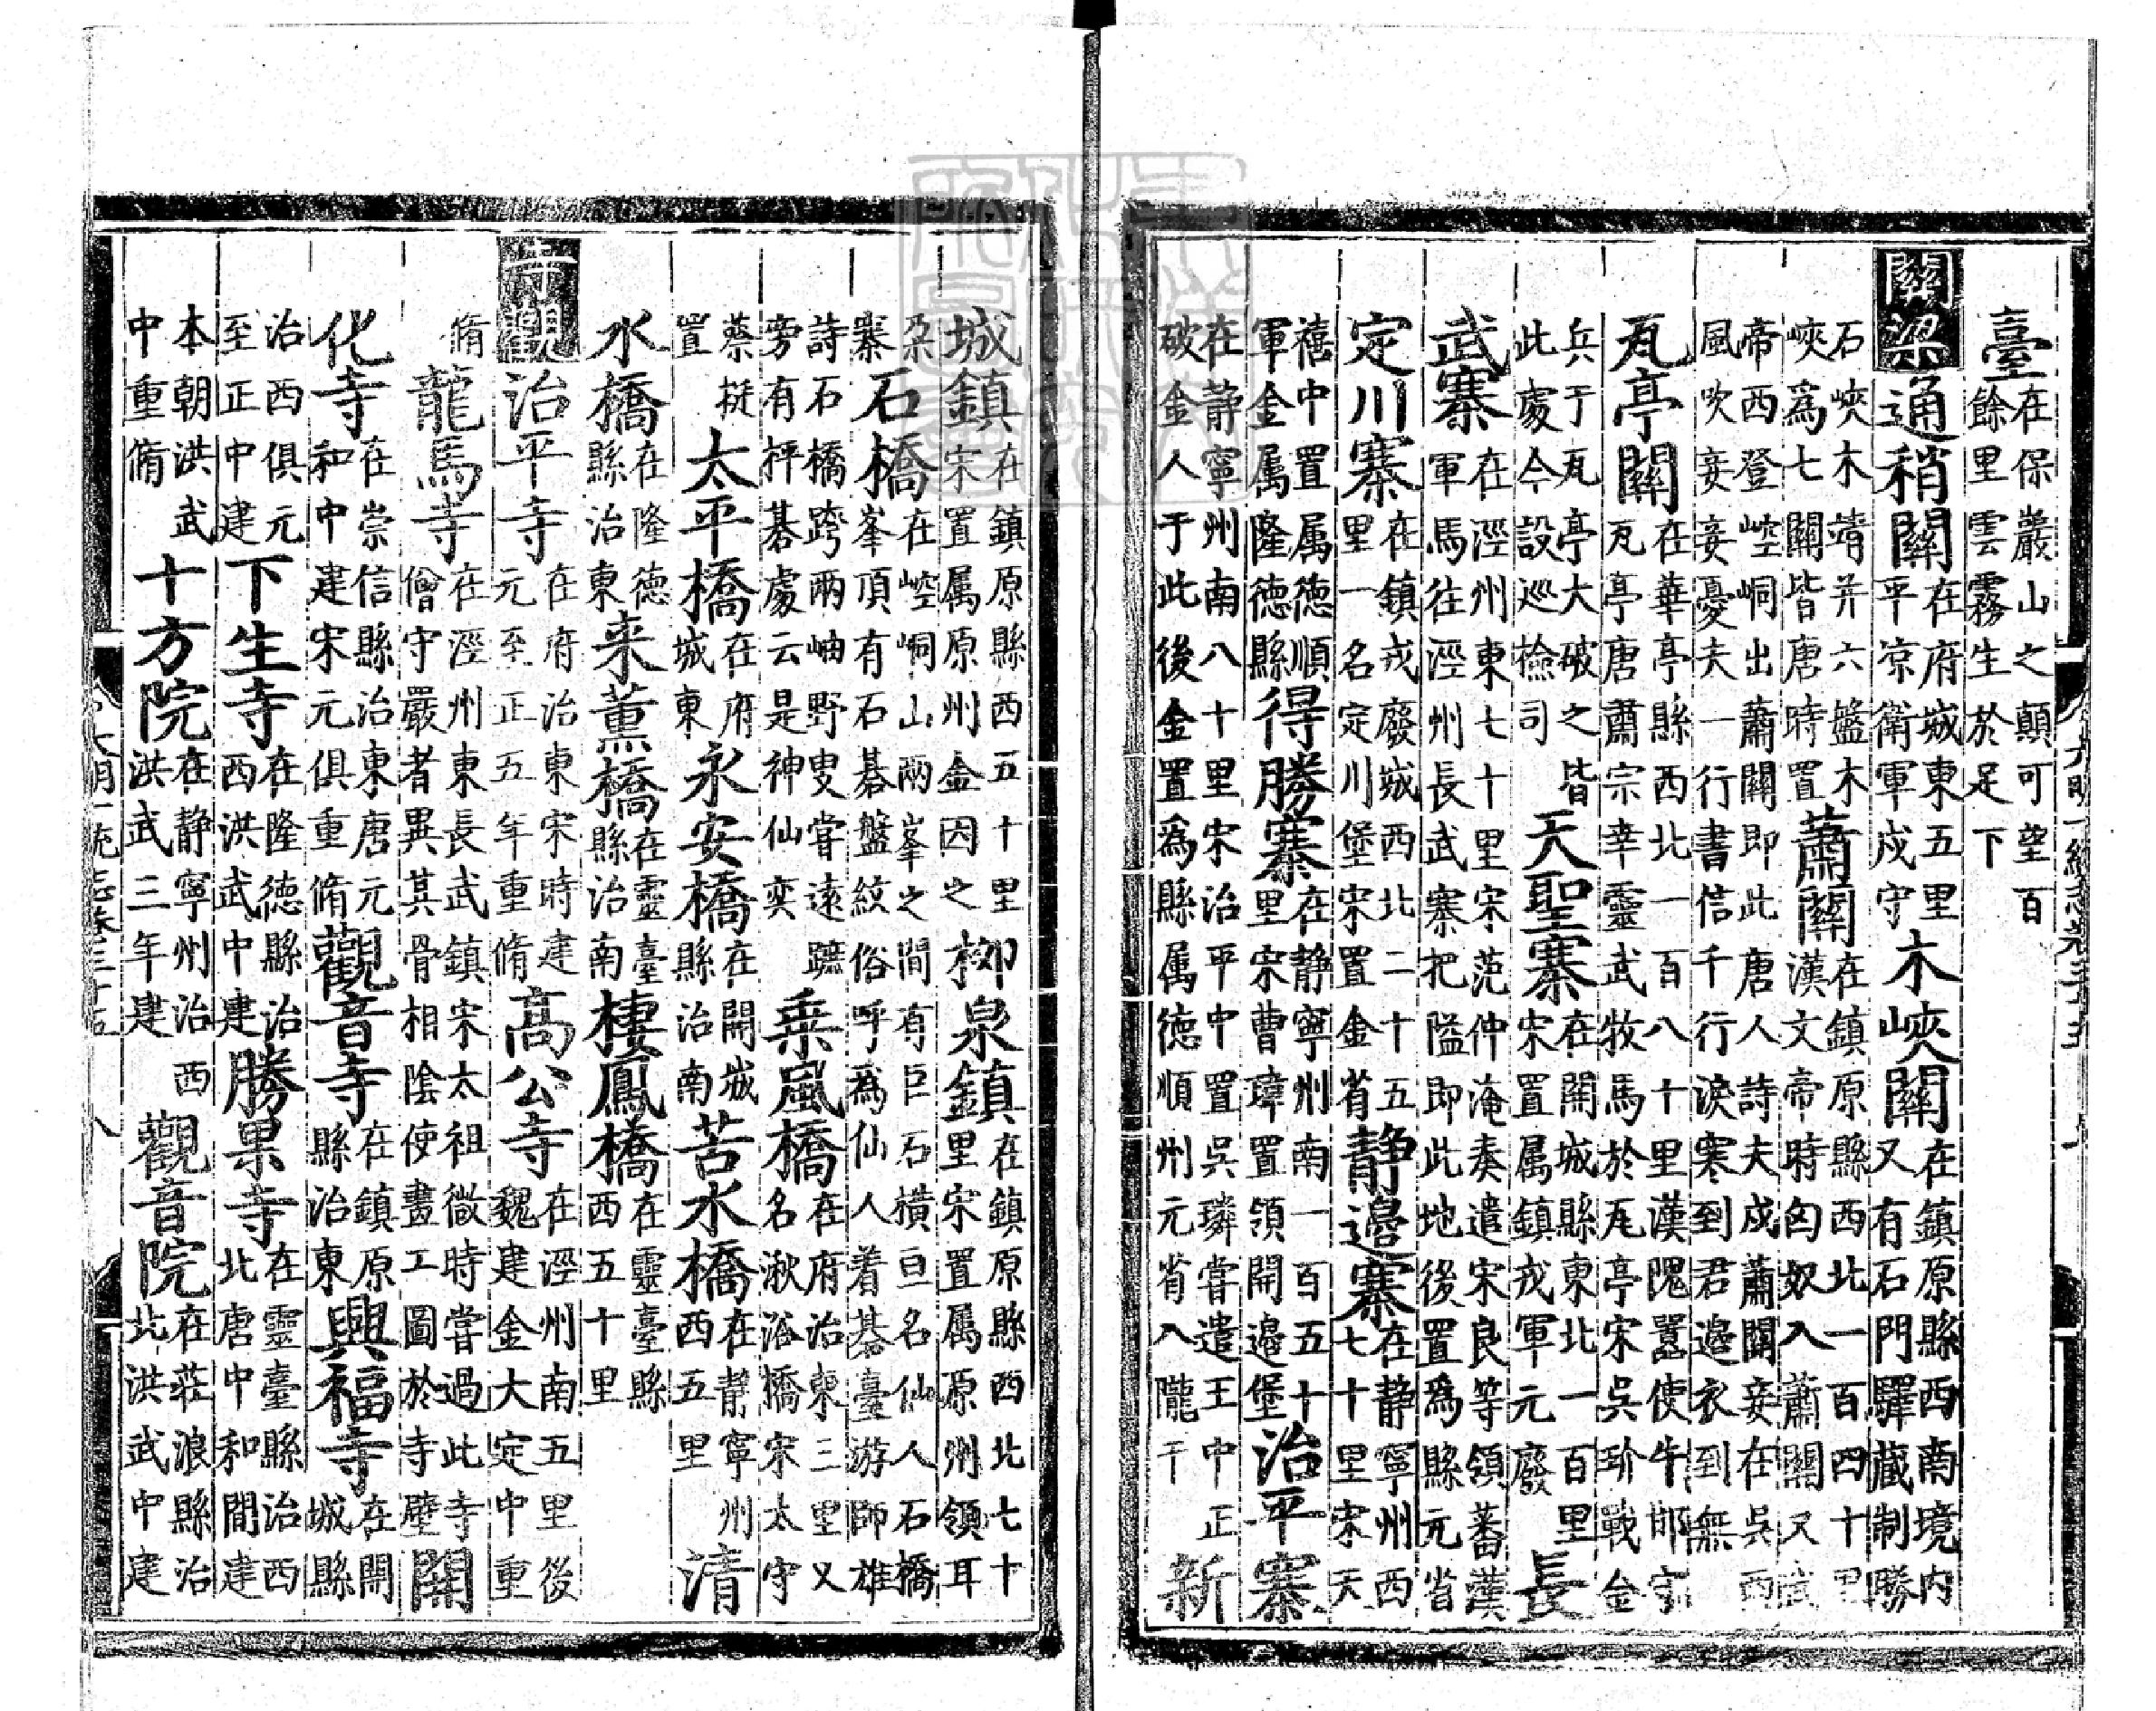 臺在保巖山之顛可望百餘里雲霧生於足下
關梁通稍關在府城東五里平凉衛軍戍守木峽關在鎮原縣西南境内又有石門驛藏制勝
石峽木靖并六盤木峽爲七關皆唐時置蕭關在鎮原縣西北一百四十里漢文帝時匈奴入蕭關又武
帝西登崆峒出蕭關即此唐人詩夫戍蕭關妾在吳西風吹妾妾憂夫一行書信千行淚寒到君邉衣到無
瓦亭關在華亭縣西北一百八十里漢隗囂使牛邯守瓦亭唐肅宗幸靈武牧馬於瓦亭宋吳玠戰金
兵于瓦亭大破之皆此處今設巡檢司天聖寨在開城縣東北一百里宋置属鎮戎軍元廢長
武寨在涇州東七十里宋范仲淹奏遣宋良等領蕃漢軍馬往涇州長武寨把隘即此地後置爲縣元省
定川寨在鎮戎廢城西北二十五里一名定川堡宋置金省静邉寨在静寧州西七十里宋天
禧中置属徳順軍金属隆徳縣得勝寨在静寧州南一百五十里宋曹瑋置領開邉堡治平寨
在静寧州南八十里宋治平中置吳璘嘗遣王中正破金人于此後金置爲縣属徳順州元省入隴干新
城鎮在鎮原縣西五十里宋置属原州金因之柳泉鎮在鎮原縣西北七十里宋置属原州領耳
朶寨石橋在崆峒山兩峯之間有巨石橫亘名仙人石橋峯頂有石碁盤紋俗呼爲仙人着碁臺游師雄
詩石橋跨兩岫野叟嘗遠蹠旁有枰碁處云是神仙奕乗風橋在府治東三里又名湫浴橋宋太守
蔡挺置太平橋在府城東永安橋在開城縣治南苦水橋在静寧州西五里清
水橋在隆徳縣治東来薫橋在靈臺縣治南棲鳳橋在靈臺縣西五十里
寺觀治平寺在府治東宋時建元至正五年重脩高公寺在涇州南五里後魏建金大定中重
脩龍馬寺在涇州東長武鎮宋太祖微時嘗過此寺僧守嚴者異其骨相陰使畫工圖於寺壁開
化寺在崇信縣治東唐元和中建宋元俱重脩觀音寺在鎮原縣治東興福寺在開城縣
治西俱元至正中建下生寺在隆徳縣治西洪武中建勝果寺在靈臺縣治西北唐中和間建
本朝洪武中重脩十方院在静寧州治西洪武三年建觀音院在莊浪縣治北洪武中建